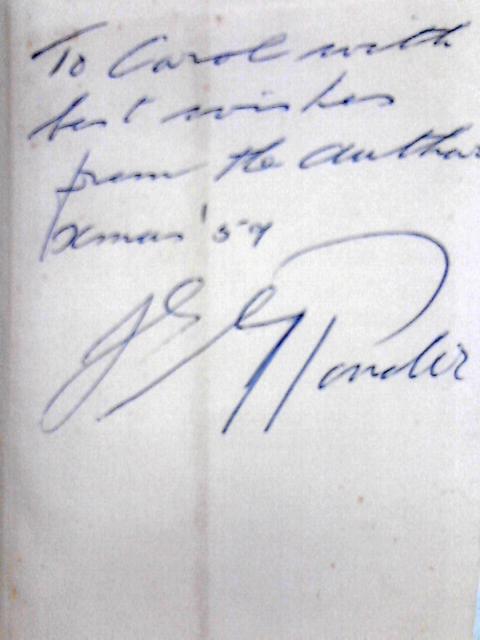 To Carol with
best wishes
from the author
xmas '59
Ponder